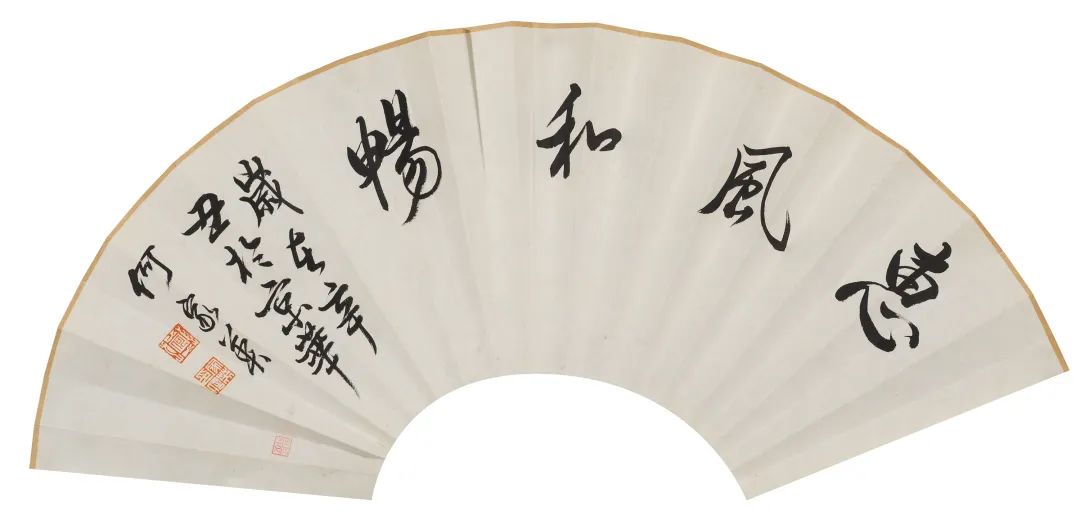 惠風和暢
歲在辛
丑於京華
何家英